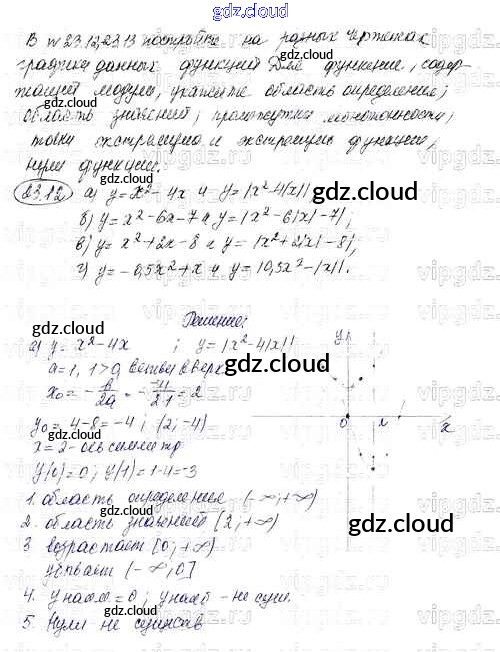 gdz.cloud
В № 23.12, 23.13 постройте на разных чертежах
графики данных функций Для функции, содер-
жащей модули, укажите область определения;
область значений; промежутки монотонности;
точки экстремума и экстремумы функции,
нули функции.
23.12 а) y = x² - 4x и y = |x² - 4|x||
б) y = x² - 6x - 7 и y = |x² - 6|x| - 7|;
в) y = x² + 2x - 8 и y = |x² + 2|x| - 8|,
г) y = -0,5x² + x и y = |0,5x² - |x||.
Решение:
а) y = x² - 4x ; y = |x² - 4|x||
a = 1, 1 > 0, ветви вверх
x₀ = -b/2a = - -4/2·1 = 2
y₀ = 4 - 8 = -4; (2; -4)
x = 2 - ось симметр
y(0) = 0; y(1) = 1 - 4 = -3
1. область определения (-∞; +∞)
2. область значений [2; +∞)
3 возрастает [0; +∞)
убывает (-∞; 0]
4. y наим = 0; y наиб - не сущ.
5. Нули не существ
y
0
x